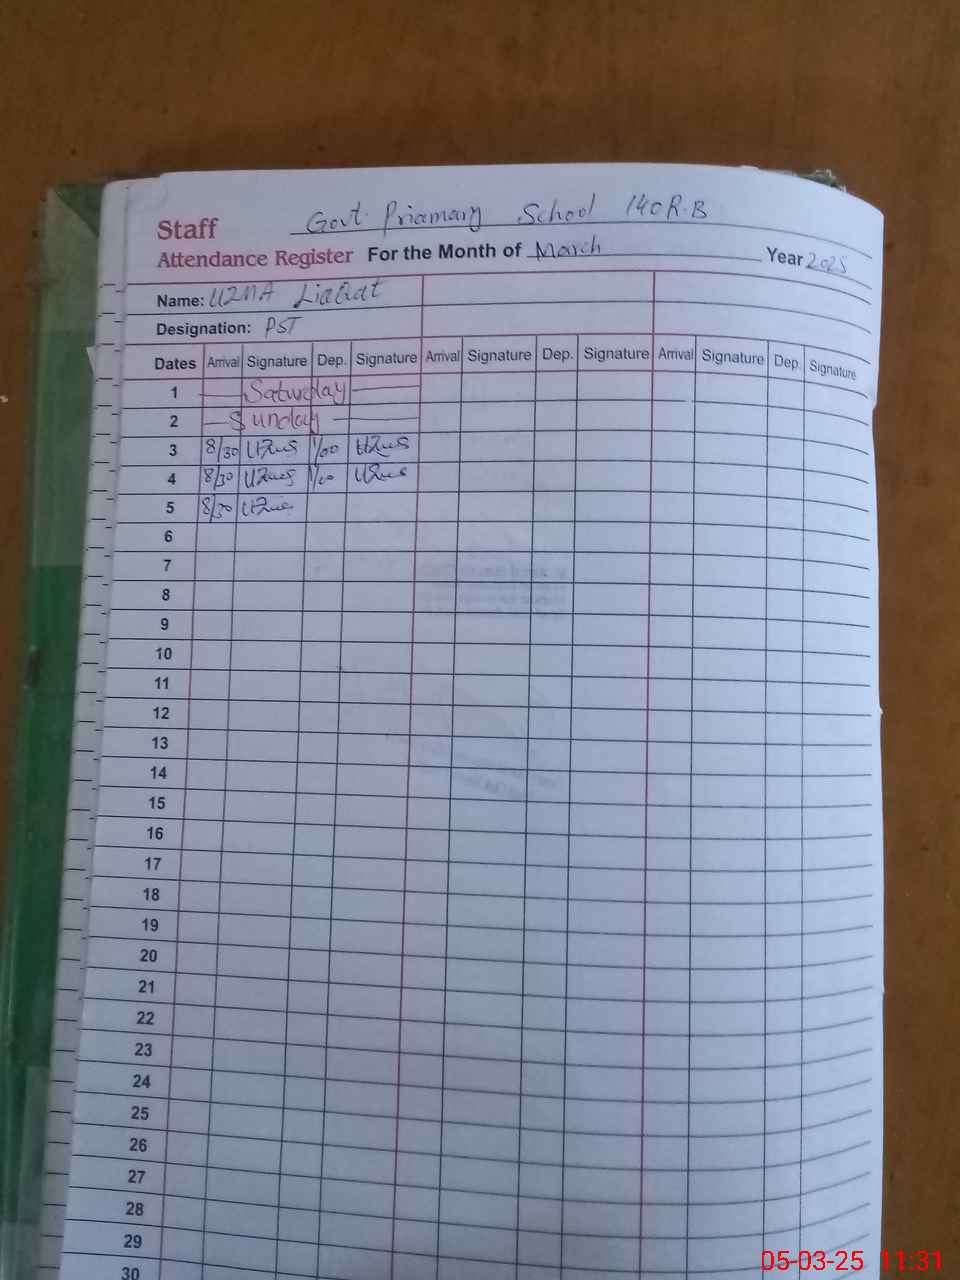 Staff
Govt. Priamary School 140 R.B
Attendance Register For the Month of March Year 2025
Name: UZMA Liaqat
Designation: PST
Dates Arrival Signature Dep. Signature Arrival Signature Dep. Signature Arrival Signature Dep. Signature
1 Saturday
2 Sunday
3 8/30 1/00
4 8/30 1/00
5 8/30
6
7
8
9
10
11
12
13
14
15
16
17
18
19
20
21
22
23
24
25
26
27
28
29
30
05-03-25 11:31